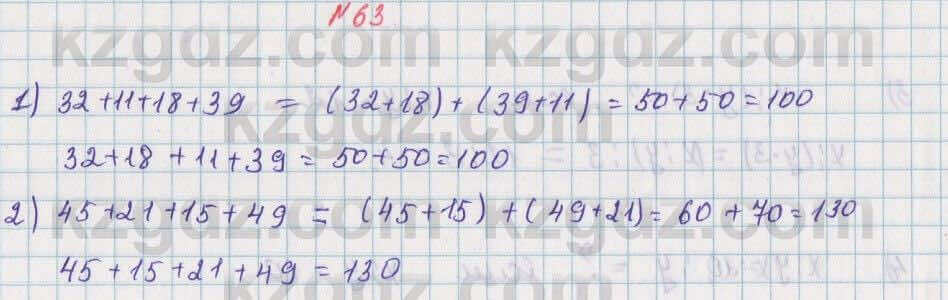 №63
1) 32+11+18+39 = (32+18)+(39+11)=50+50=100
32+18+11+39=50+50=100
2) 45+21+15+49 = (45+15)+(49+21)=60+70=130
45+15+21+49=130
kzgdz.com kzgdz.com